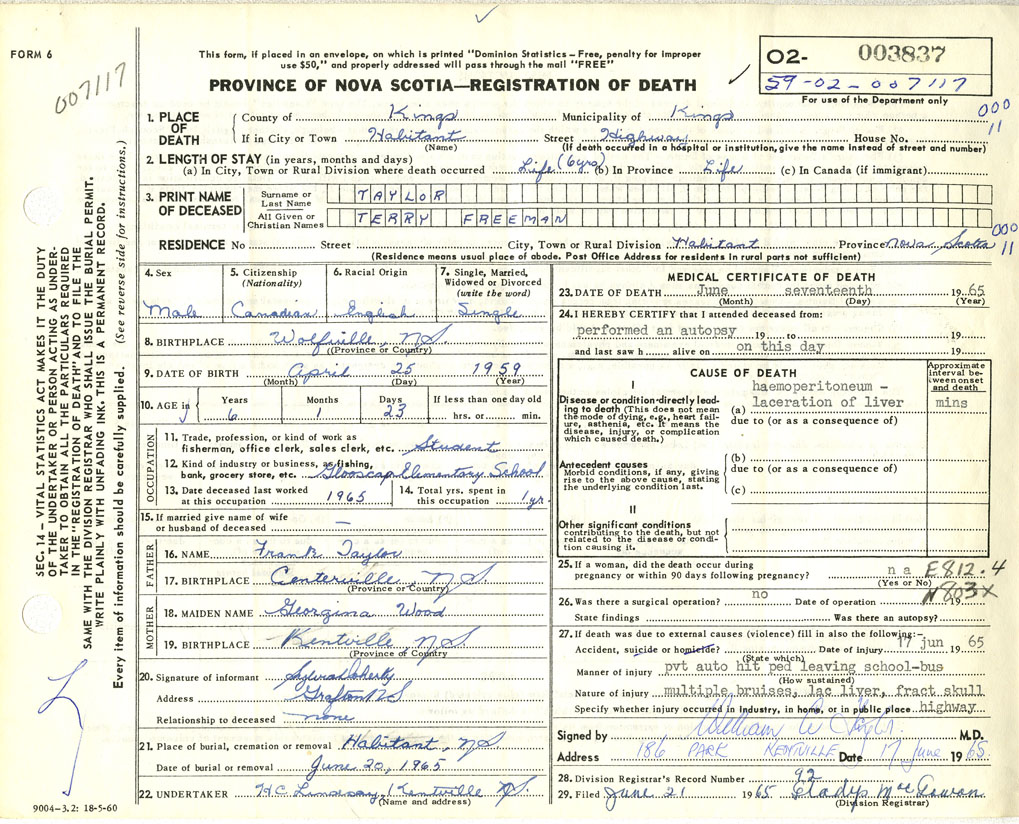 FORM 6
007117
This form, if placed in an envelope, on which is printed "Dominion Statistics – Free, penalty for improper
use $50," and properly addressed will pass through the mail "FREE"
PROVINCE OF NOVA SCOTIA—REGISTRATION OF DEATH
O2- 003837
59-02-007117
For use of the Department only
000
11
SEC. 14 – VITAL STATISTICS ACT MAKES IT THE DUTY
OF THE UNDERTAKER OR PERSON ACTING AS UNDER-
TAKER TO OBTAIN ALL THE PARTICULARS REQUIRED
IN THE "REGISTRATION OF DEATH" AND TO FILE THE
SAME WITH THE DIVISION REGISTRAR WHO SHALL ISSUE THE BURIAL PERMIT.
WRITE PLAINLY WITH UNFADING INK. THIS IS A PERMANENT RECORD.
Every item of information should be carefully supplied. (See reverse side for instructions.)
1. PLACE OF DEATH
County of Kings Municipality of Kings
If in City or Town Habitant Street Highway House No.
(Name) (If death occurred in a hospital or institution, give the name instead of street and number)
2. LENGTH OF STAY (in years, months and days)
(a) In City, Town or Rural Division where death occurred Life (6yrs) (b) In Province Life (c) In Canada (if immigrant)
3. PRINT NAME OF DECEASED
Surname or Last Name TAYLOR
All Given or Christian Names TERRY FREEMAN
000
11
RESIDENCE No Street City, Town or Rural Division Habitant Province Nova Scotia
(Residence means usual place of abode. Post Office Address for residents in rural parts not sufficient)
4. Sex 5. Citizenship (Nationality) 6. Racial Origin 7. Single, Married, Widowed or Divorced (write the word)
Male Canadian English Single
8. BIRTHPLACE Wolfville, NS
(Province or Country)
9. DATE OF BIRTH April 25 1959
(Month) (Day) (Year)
10. AGE in Years Months Days If less than one day old
6 1 23 hrs. or min.
OCCUPATION
11. Trade, profession, or kind of work as
fisherman, office clerk, sales clerk, etc. Student
12. Kind of industry or business, as fishing,
bank, grocery store, etc. Glooscap Elementary School
13. Date deceased last worked at this occupation 1965 14. Total yrs. spent in this occupation 1 yr.
15. If married give name of wife
or husband of deceased —
FATHER
16. NAME Frank Taylor
17. BIRTHPLACE Centerville, N.S.
(Province or Country)
MOTHER
18. MAIDEN NAME Georgina Wood
19. BIRTHPLACE Kentville N.S.
(Province or Country)
20. Signature of informant
Address Grafton NS
Relationship to deceased none
21. Place of burial, cremation or removal Habitant, NS
Date of burial or removal June 20, 1965
22. UNDERTAKER H.C. Lindsay, Kentville NS.
(Name and address)
9004–3.2: 18-5-60
MEDICAL CERTIFICATE OF DEATH
23. DATE OF DEATH June seventeenth 19 65
(Month) (Day) (Year)
24. I HEREBY CERTIFY that I attended deceased from:
performed an autopsy 19 to 19
and last saw h alive on on this day 19
CAUSE OF DEATH
Approximate interval between onset and death
I
Disease or condition directly leading to death (This does not mean the mode of dying, e.g., heart failure, asthenia, etc. It means the disease, injury, or complication which caused death.)
haemoperitoneum -
(a) laceration of liver mins
due to (or as a consequence of)
Antecedent causes
Morbid conditions, if any, giving rise to the above cause, stating the underlying condition last.
(b)
due to (or as a consequence of)
(c)
II
Other significant conditions
contributing to the death, but not related to the disease or condition causing it.
25. If a woman, did the death occur during
pregnancy or within 90 days following pregnancy? n a E812.4
(Yes or No)
N803X
26. Was there a surgical operation? no Date of operation 19
State findings Was there an autopsy?
27. If death was due to external causes (violence) fill in also the following:–
Accident, suicide or homicide? Date of injury 17 jun 19 65
(State which)
Manner of injury pvt auto hit ped leaving school-bus
(How sustained)
Nature of injury multiple bruises, lac liver, fract skull
Specify whether injury occurred in industry, in home, or in public place highway
Signed by William A M.D.
Address 186 PARK KENTVILLE Date 17 June 19 65
28. Division Registrar's Record Number 92
29. Filed June 21 19 65 Gladys McGowan
(Division Registrar)